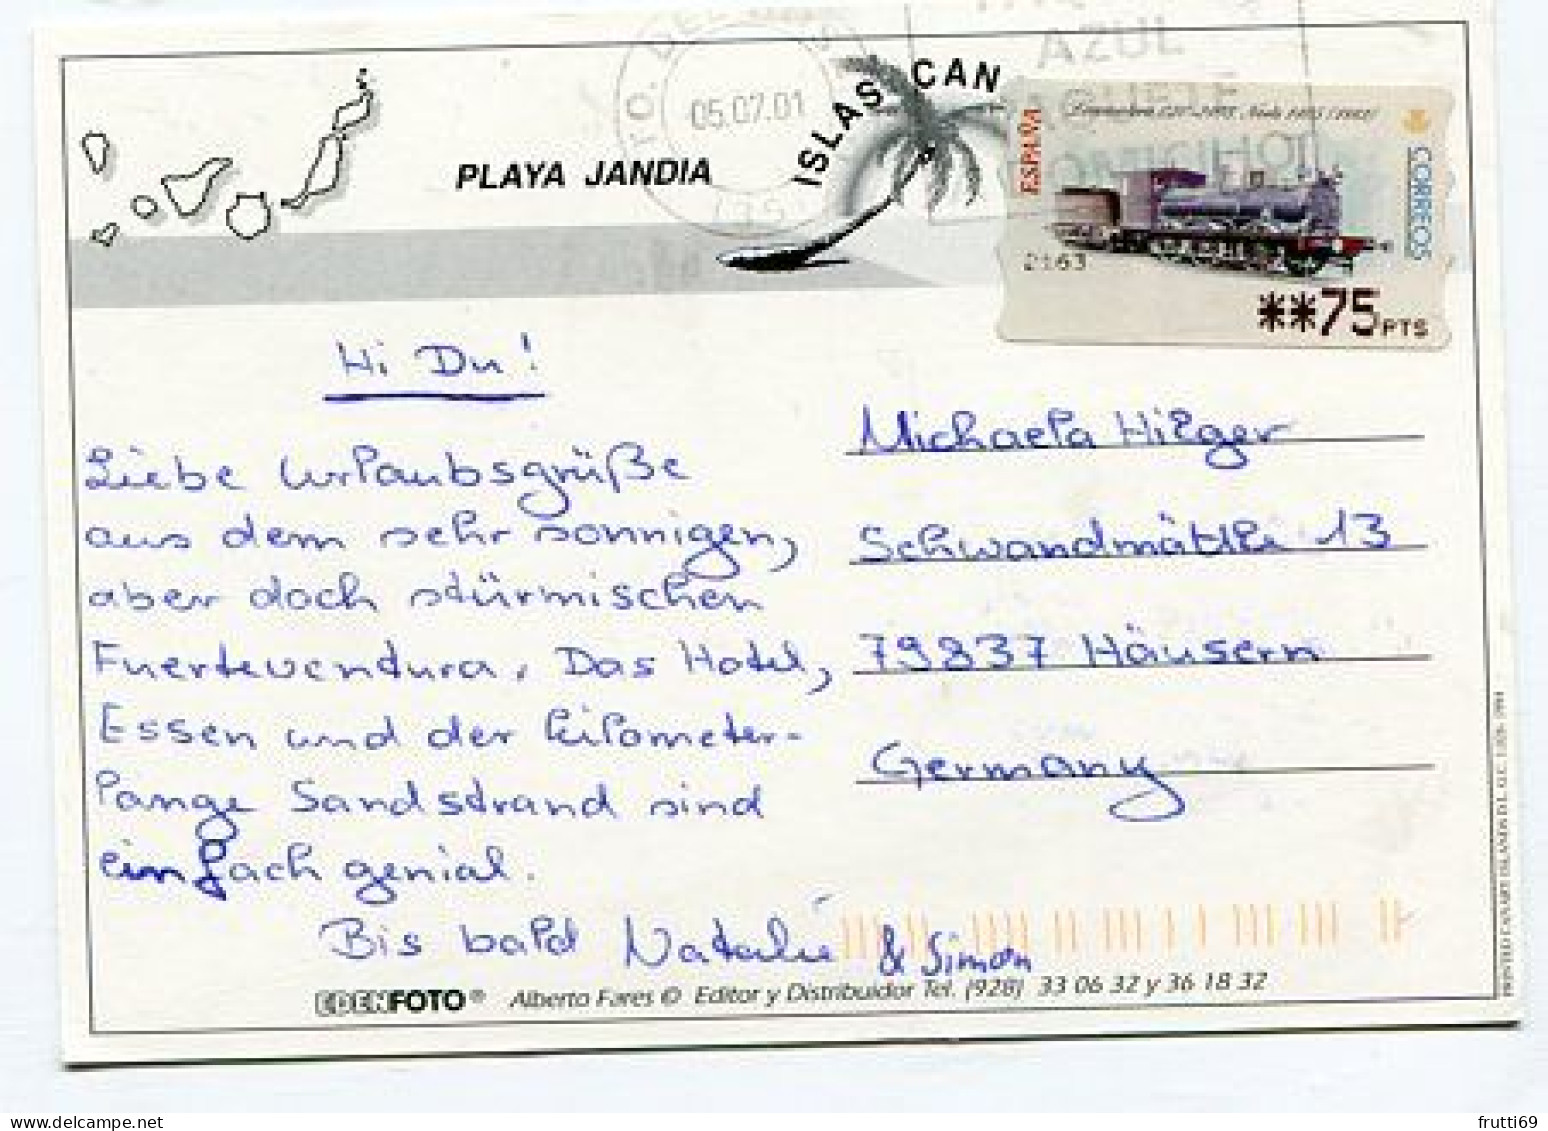 AZUL
05.07.01
ISLAS CAN
PLAYA JANDIA
ESPAÑA
CORREOS
2163
**75PTS
Hi Du!
Liebe Urlaubsgrüße
aus dem sehr sonnigen,
aber doch stürmischen
Fuerteventura. Das Hotel,
Essen und der kilometer-
lange Sandstrand sind
einfach genial.
Bis bald Natalie & Simon
Michaela Hilger
Schwandmättle 13
79837 Häusern
Germany
EDENFOTO® Alberto Fares © Editor y Distribuidor Tel. (928) 33 06 32 y 36 18 32
PRINTED CANARY ISLANDS D.L. G.C.
frutti69